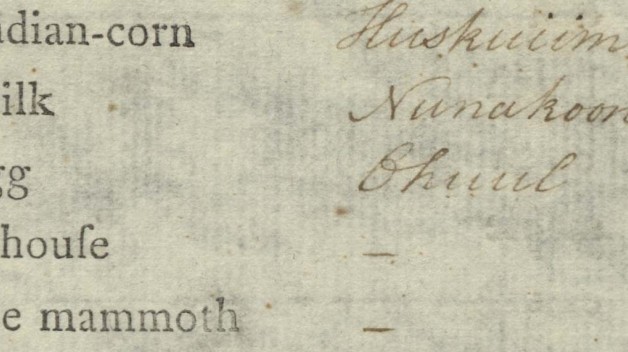 adian-corn Huskuiim
ilk Nunakoon
gg Ohuul
houſe –
e mammoth –